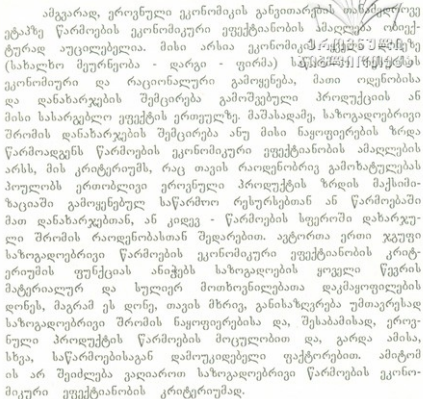 ამგვარად, ეროვნული ეკონომიკის განვითარების თანამედროვე
ეტაპზე წარმოების ეკონომიკური ეფექტიანობის ამაღლება ობიექ-
ტურად აუცილებელია. მისი არსია ეკონომიკის ყველა
(სახალხო მეურნეობა - დარგი - ფირმა)
ეკონომიური და რაციონალური გამოყენება, მათი ოდენობისა
და დანახარჯების შემცირება გამოშვებული პროდუქციის ან
მისი სასარგებლო ეფექტის ერთეულზე. მაშასადამე, საზოგადოებრივი
შრომის დანახარჯების შემცირება ანუ მისი ნაყოფიერების ზრდა
წარმოადგენს წარმოების ეკონომიკური ეფექტიანობის ამაღლების
არსს, მის კრიტერიუმს, რაც თავის რაოდენობრივ გამოხატულებას
პოულობს ერთობლივი ეროვნული პროდუქტის ზრდის მაქსიმი-
ზაციაში გამოყენებულ საწარმოო რესურსებთან ან წარმოებაში
მათ დანახარჯებთან, ან კიდევ - წარმოების სფეროში დახარჯუ-
ლი შრომის რაოდენობასთან შედარებით. ავტორთა ერთი ჯგუფი
საზოგადოებრივი წარმოების ეკონომიკური ეფექტიანობის კრიტ-
ერიუმის ფუნქციას ანიჭებს საზოგადოების ყოველი წევრის
მატერიალურ და სულიერ მოთხოვნილებათა დაკმაყოფილების
დონეს, მაგრამ ეს დონე, თავის მხრივ, განისაზღვრება უმთავრესად
საზოგადოებრივი შრომის ნაყოფიერებისა და, შესაბამისად, ეროვ-
ნული პროდუქტის წარმოების მოცულობით და, გარდა ამისა,
სხვა, საწარმოებისაგან დამოუკიდებელი ფაქტორებით. ამიტომ
ის არ შეიძლება ვაღიაროთ საზოგადოებრივი წარმოების ეკონო-
მიკური ეფექტიანობის კრიტერიუმად.